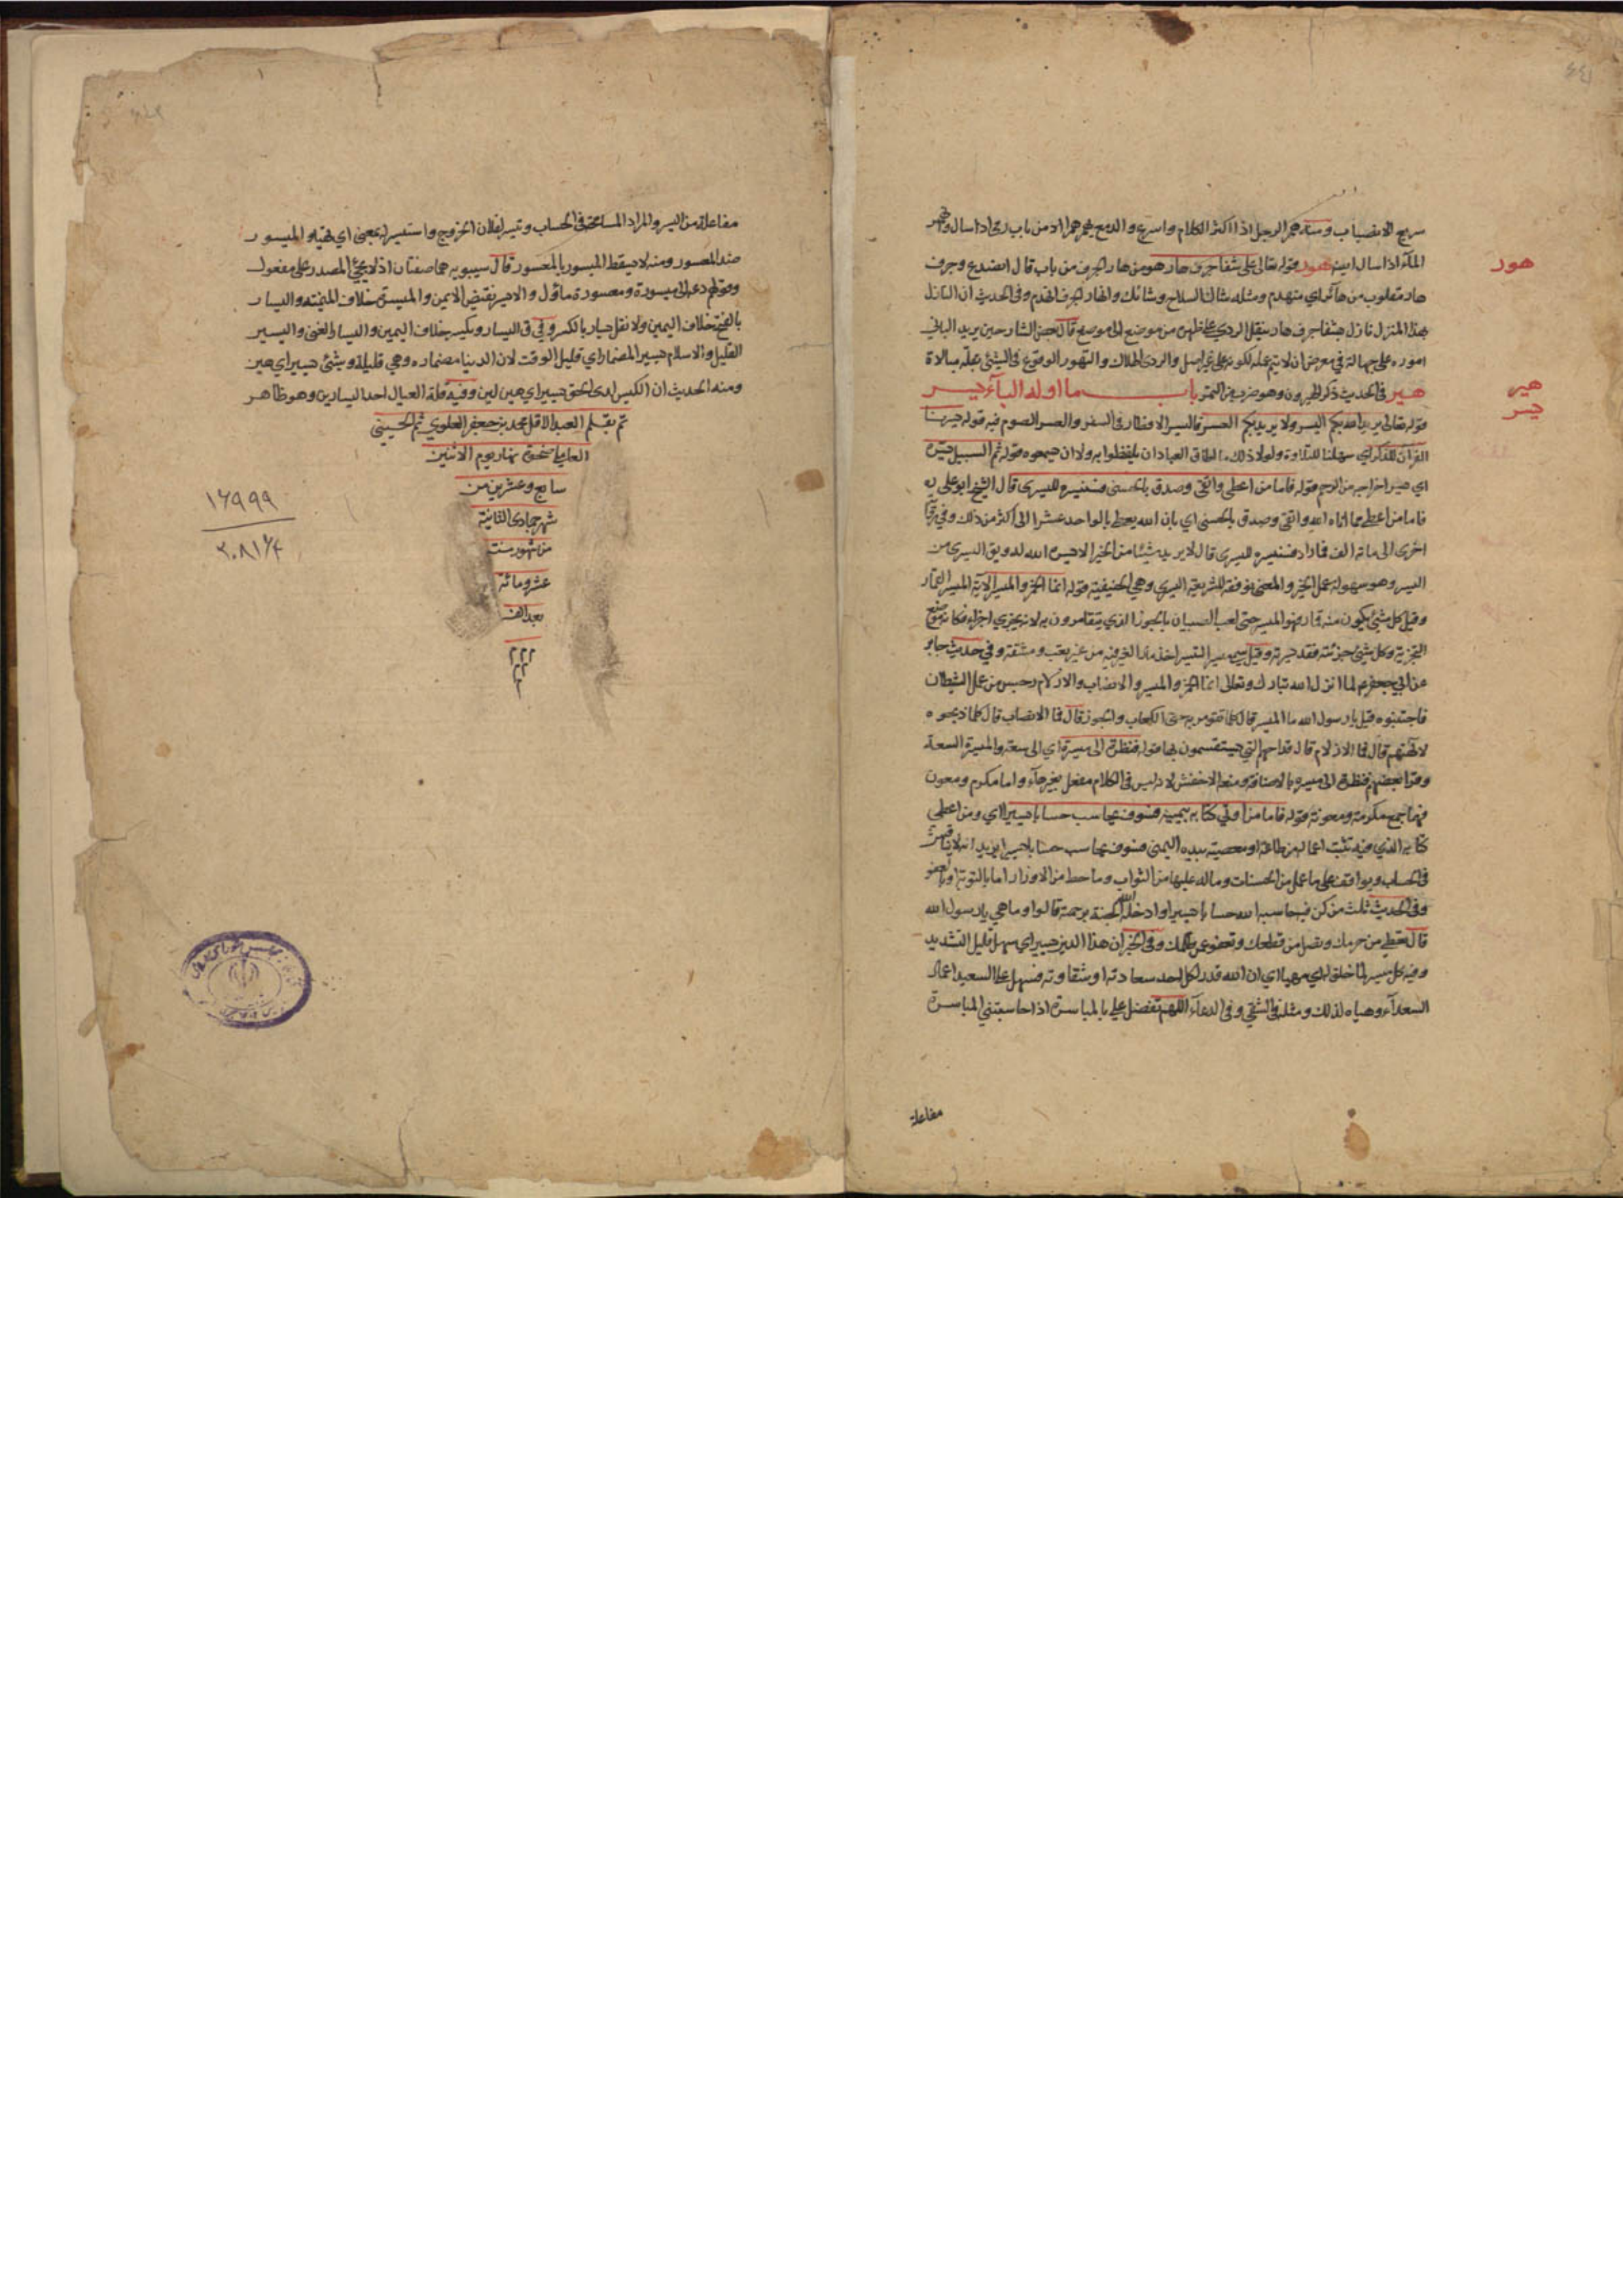 سريع الانصباب ومنه همر الرجل اذا اكثر الكلام واسرع والدمع يهمر همرا من باب رمى اذا سال وانهمر
الماء اذا سال ايضا هور قوله تعالى على شفا جرف هار هو من هار الجرف من باب قال انصدع وجرف
هار مقلوب من هائر اي منهدم ومثله شاك السلاح وشائك وانهار الجرف انهدم وفي الحديث ان النازل
بهذا المنزل نازل بشفا جرف هار ينقل الردى على ظهره من موضع الى موضع قال بعض الشارحين يريد الباني
اموره على جهالة في معرض ان لا يتم عمله لكونه على غير اصل والردى الهلاك والتهور الوقوع في الشيء بقلة مبالاة
هير في الحديث ذكر الهيرون وهو ضرب من التمر باب ما اوله الياء يسر
قوله تعالى يريد الله بكم اليسر ولا يريد بكم العسر فاليسر الافطار في السفر والعسر الصوم فيه قوله يسرنا
القرآن للذكر اي سهلنا للتلاوة ولولا ذلك ما اطاق العباد ان يلفظوا به ولا ان يسمعوه قوله ثم السبيل يسره
اي يسر اخراجه من الرحم قوله فاما من اعطى واتقى وصدق بالحسنى فسنيسره لليسرى قال الشيخ ابو علي ره
فاما من اعطى مما اتاه الله واتقى وصدق بالحسنى اي بان الله يعطي بالواحد عشرا الى اكثر من ذلك وفي رواية
اخرى الى مائة الف فما زاد فسنيسره لليسرى قال لا يريد شيئا من الخير الا يسره الله له ويق اليسرى من
اليسر وهو سهولة عمل الخير والمعنى نوفقه للشريعة اليسرى وهي الحنيفية قوله انما الخمر والميسر الآية الميسر القمار
وقيل كل شيء يكون منه قمار فهو الميسر حتى لعب الصبيان بالجوز الذي يتقامرون به لانه يجزي اجزاء فكانه موضع
التجزية وكل شيء جزئته فقد يسرته وقيل سمي ميسرا لتيسر اخذ مال الغير فيه من غير تعب ومشقة وفي حديث جابر
عن ابي جعفر ع لما انزل الله تبارك وتعالى انما الخمر والميسر والانصاب والازلام رجس من عمل الشيطان
فاجتنبوه قيل يا رسول الله ما الميسر قال كلما تقومر به حتى الكعاب والجوز قال فما الانصاب قال كلما ذبحوه
لالهتهم قال فما الازلام قال قداحهم التي يستقسمون بها قوله فنظرة الى ميسرة اي الى سعة والميسرة السعة
وقرا بعضهم فنظرة الى ميسره بالاضافة ومنعه الاخفش لانه ليس في الكلام مفعل بغير هاء واما مكرم ومعون
فهما جمع مكرمة ومعونة قوله فاما من اوتي كتابه بيمينه فسوف يحاسب حسابا يسيرا اي ومن اعطي
كتابه الذي فيه تثبت اعماله من طاعة او معصية بيده اليمنى فسوف يحاسب حسابا يسيرا يريد انه لا يناقش
في الحساب ويواقف على ما عمل من الحسنات وماله عليها من الثواب وما حط من الاوزار اما بالتوبة او بالعفو
وفي الحديث ثلث من كن فيه حاسبه الله حسابا يسيرا وادخله الله الجنة برحمته قالوا وما هي يا رسول الله
قال تعطي من حرمك وتصل من قطعك وتعفو عمن ظلمك وفي الخبر ان هذا الدين يسير اي سهل قليل التشديد
وفيه كل ميسر لما خلق له اي مهيا اي ان الله قدر لكل احد سعادته او شقاوته فسهل على السعيد اعمال
السعداء وهياه لذلك ومثله في الشقي وفي الدعاء اللهم تفضل علي بالمياسرة اذا حاسبتني المياسرة
مفاعلة
هور
هير
يسر
مفاعلة من اليسر والمراد المسامحة في الحساب وتيسر لفلان الخروج واستيسر له بمعنى اي تهيا والميسور
ضد المعسور ومنه لا يسقط الميسور بالمعسور قال سيبويه هما صفتان اذ لا يجيء المصدر على مفعول
وقولهم دعه الى ميسورة ومعسورة ماؤل والايسر نقيض الايمن والميسرة خلاف الميمنة واليسار
بالفتح خلاف اليمين ولا تقل يسار بالكسر وفي ق اليسار ويكسر خلاف اليمين واليسار الغنى واليسير
القليل والاسلام يسير المضمار اي قليل الوقت لان الدنيا مضماره وهي قليلة وشيء يسير اي هين
ومنه الحديث ان الكيس لدى الحق يسير اي هين لين وفيه قلة العيال احد اليسارين وهو ظاهر
تم بقلم العبد الاقل محمد بن جعفر العلوي ثم الحسيني
العاملي ضحوة نهار يوم الاثنين
سابع وعشرين من
شهر جمادى الثانية
من شهور سنة
عشر ومائة
بعد الف
١٦٩٩٩
٢٠٨١٦٤